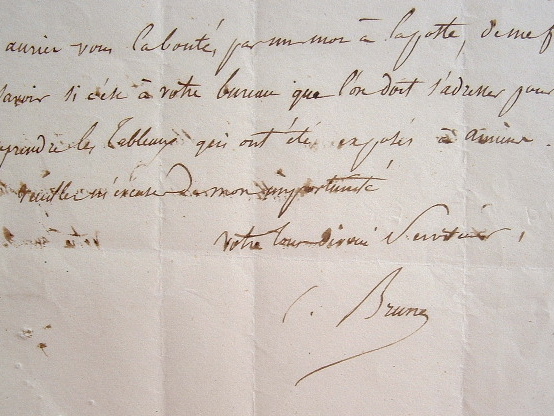 auriez vous la bonté, par un mot à la poste, de me f
savoir si c'est à votre bureau que l'on doit s'adresser pour
prendre les Tableaux qui ont été exposés à amiens.
veuillez m'excuser de mon importunité
Votre tout dévoué Serviteur,
C. Brune